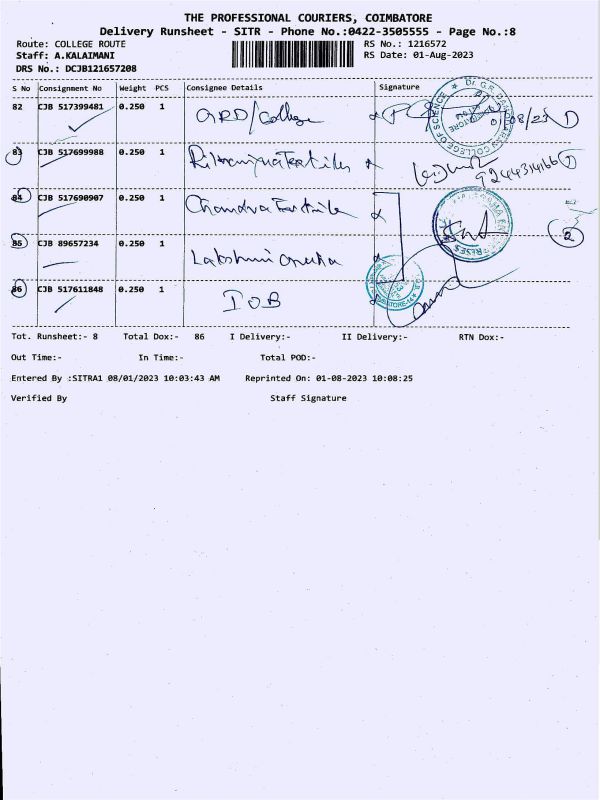 THE PROFESSIONAL COURIERS, COIMBATORE
Delivery Runsheet - SITR - Phone No.:0422-3505555 - Page No.:8
Route: COLLEGE ROUTE RS No.: 1216572
Staff: A.KALAIMANI RS Date: 01-Aug-2023
DRS No.: DCJB121657208
S No Consignment No Weight PCS Consignee Details Signature
82 CJB 517399481 0.250 1 GRD/College
83 CJB 517699988 0.250 1 9244314166
84 CJB 517690907 0.250 1 Chandra Textile
85 CJB 89657234 0.250 1 Lakshmi 2
86 CJB 517611848 0.250 1 IOB
Tot. Runsheet:- 8 Total Dox:- 86 I Delivery:- II Delivery:- RTN Dox:-
Out Time:- In Time:- Total POD:-
Entered By :SITRA1 08/01/2023 10:03:43 AM Reprinted On: 01-08-2023 10:08:25
Verified By Staff Signature